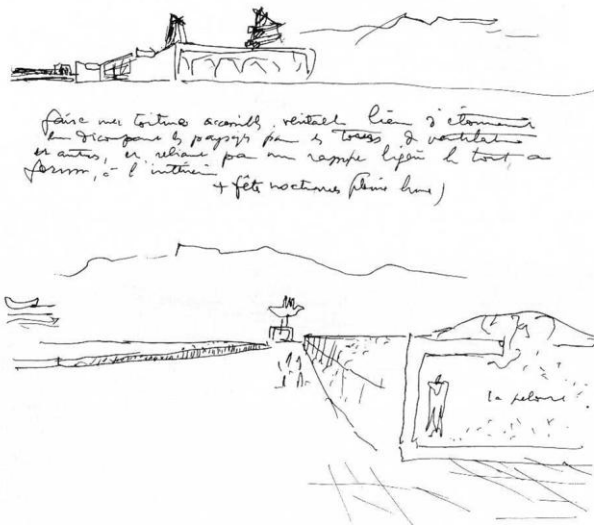 faire une toiture accessible, véritable lieu d'étonnement
en découpant les paysages par les tours de ventilation
et autres, en reliant par une rampe légère le tout, au
forum, à l'intérieur
+ fête nocturnes (pleine lune)
la pelouse